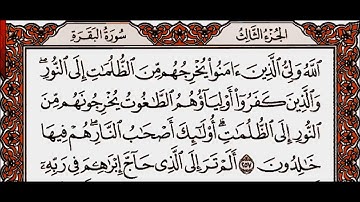 الجزء الثالث
سورة البقرة
ٱللَّهُ وَلِيُّ ٱلَّذِينَ ءَامَنُوا۟ يُخْرِجُهُم مِّنَ ٱلظُّلُمَٰتِ إِلَى ٱلنُّورِ ۖ
وَٱلَّذِينَ كَفَرُوٓا۟ أَوْلِيَآؤُهُمُ ٱلطَّٰغُوتُ يُخْرِجُونَهُم مِّنَ
ٱلنُّورِ إِلَى ٱلظُّلُمَٰتِ ۗ أُو۟لَٰٓئِكَ أَصْحَٰبُ ٱلنَّارِ ۖ هُمْ فِيهَا
خَٰلِدُونَ ٢٥٧ أَلَمْ تَرَ إِلَى ٱلَّذِى حَآجَّ إِبْرَٰهِۦمَ فِى رَبِّهِۦٓ